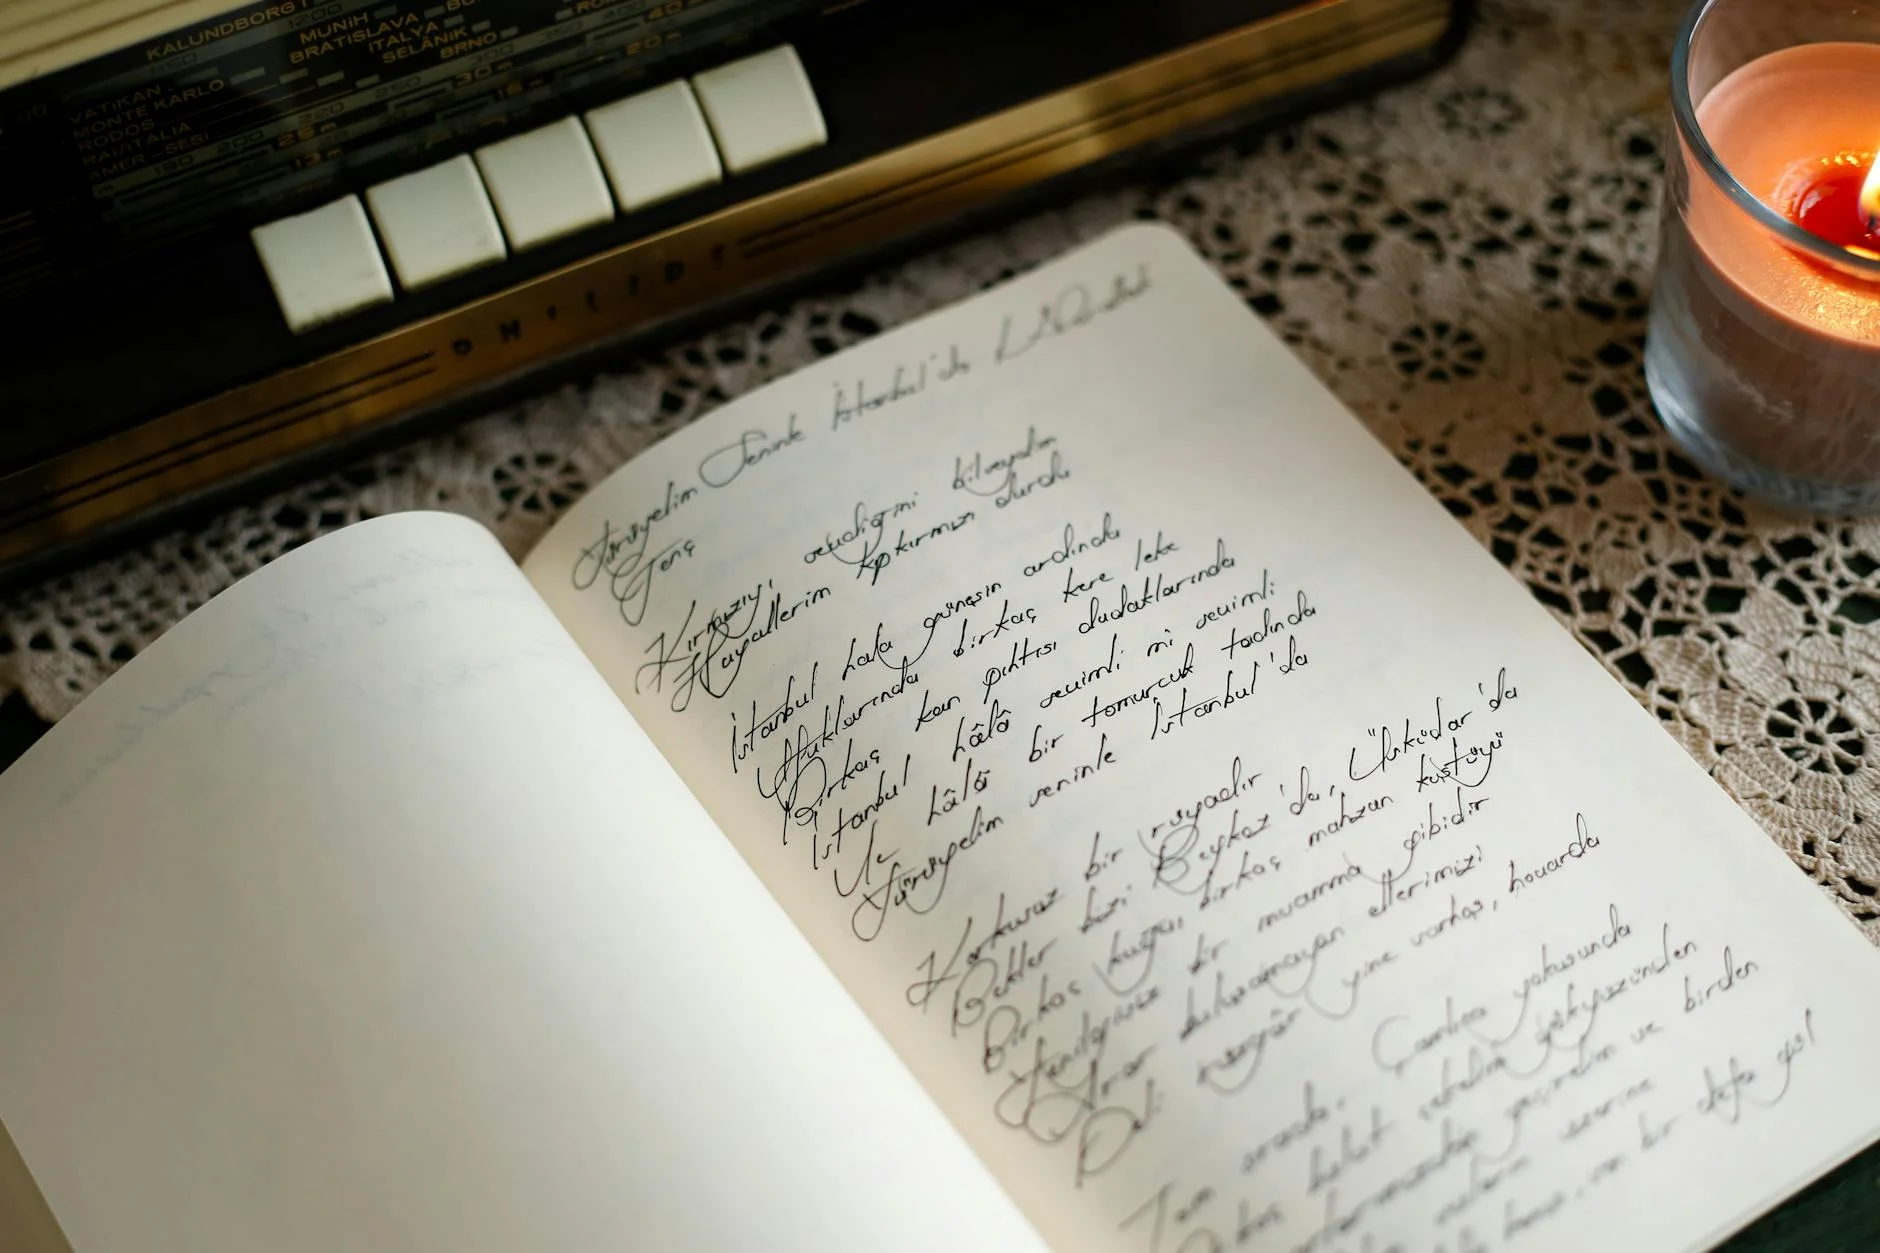 KALUNDBORG
1200
MUNİH
BRATISLAVA
İTALYA
SELÂNİK
BRNO
VATİKAN
MONTE CARLO
RODOS
RAI/ITALIA
AMER-SESİ
PHILIPS
Yürüyelim Seninle İstanbul'da
Genç
Kırmızıyı sevdiğimi bileydim
Hayallerim kıpkırmızı dururdu
İstanbul hala güneşin ardında
Ufuklarında birkaç kere leke
Birkaç kan pıhtısı dudaklarında
İstanbul hâlâ sevimli mi sevimli
Ve hâlâ bir tomurcuk tadında
Yürüyelim seninle İstanbul'da
Korkusuz bir rüyadır
Bekler bizi Beykoz'da, Üsküdar'da
Birkaç kuğu, birkaç mahzun küstüyü
Yenilgimiz bir muamma gibidir
Arar buluşamayan ellerimizi
Deli rüzgâr yine sarhoş, hovarda
Tam orada, Çamlıca yokuşunda
bulut çekelim gökyüzünden
geçirelim ve birden
üzerine
bir defa gül